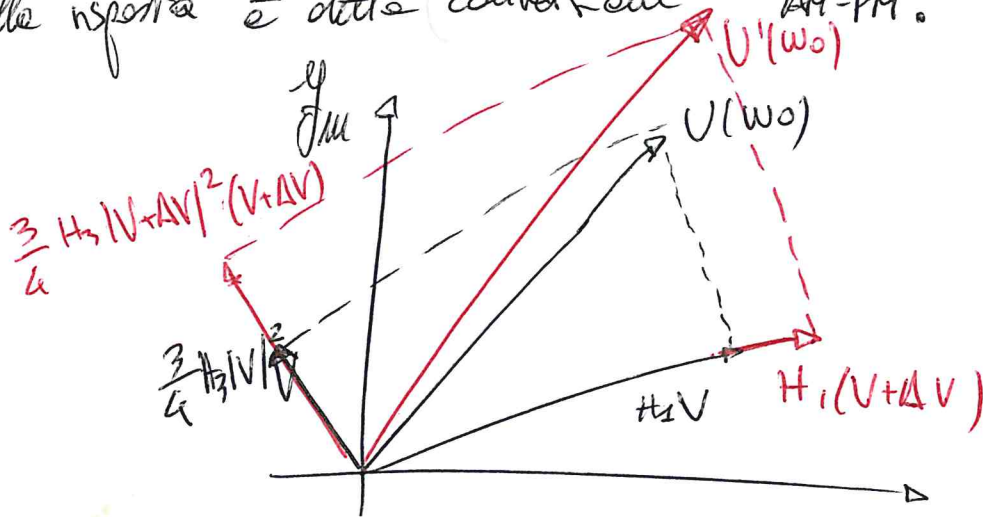 lla risposta è detta conversione AM-PM.
U'(ω0)
Im
U(ω0)
3/4 H3|V+ΔV|²(V+ΔV)
3/4 H3|V|²V
H1V
H1(V+ΔV)